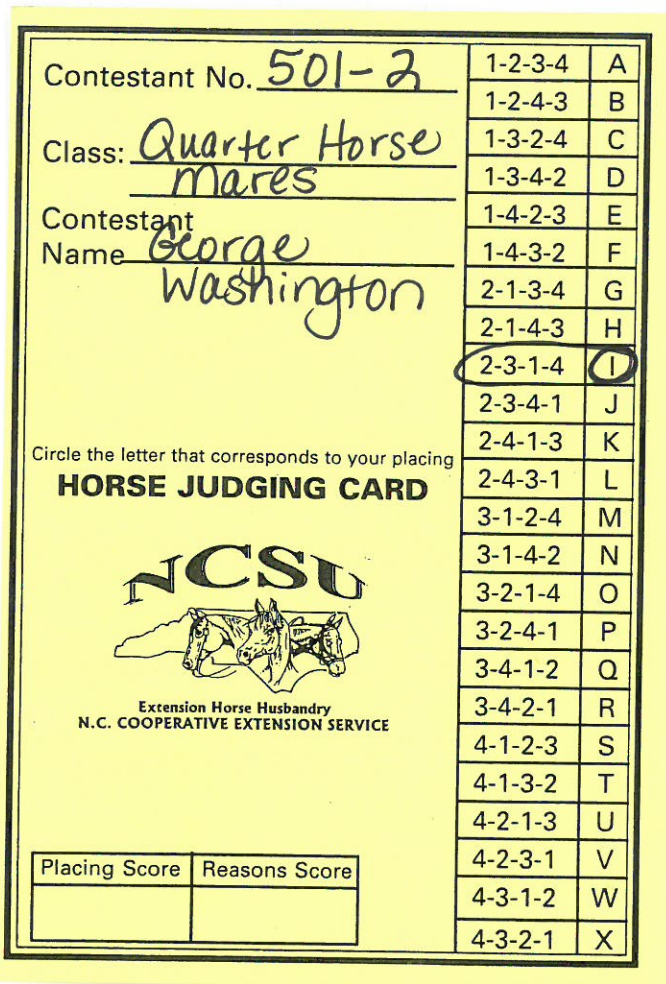 Contestant No. 501-2
Class: Quarter Horse
Mares
Contestant
Name George
Washington
Circle the letter that corresponds to your placing
HORSE JUDGING CARD
NCSU
Extension Horse Husbandry
N.C. COOPERATIVE EXTENSION SERVICE
Placing Score Reasons Score
1-2-3-4 A
1-2-4-3 B
1-3-2-4 C
1-3-4-2 D
1-4-2-3 E
1-4-3-2 F
2-1-3-4 G
2-1-4-3 H
2-3-1-4 I
2-3-4-1 J
2-4-1-3 K
2-4-3-1 L
3-1-2-4 M
3-1-4-2 N
3-2-1-4 O
3-2-4-1 P
3-4-1-2 Q
3-4-2-1 R
4-1-2-3 S
4-1-3-2 T
4-2-1-3 U
4-2-3-1 V
4-3-1-2 W
4-3-2-1 X